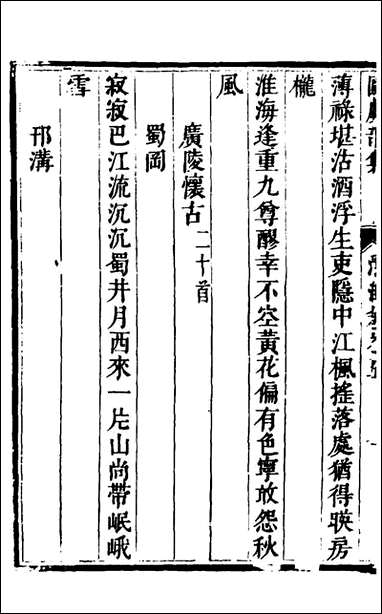 薄祿堪沽酒浮生吏隱中江楓搖落處猶得暎房
櫳
淮海逢重九尊醪幸不空黃花偏有色寧敢怨秋
風
廣陵懷古二十首
蜀岡
寂寂巴江流沉沉蜀井月西來一片山尚帶岷峨
雪
邗溝